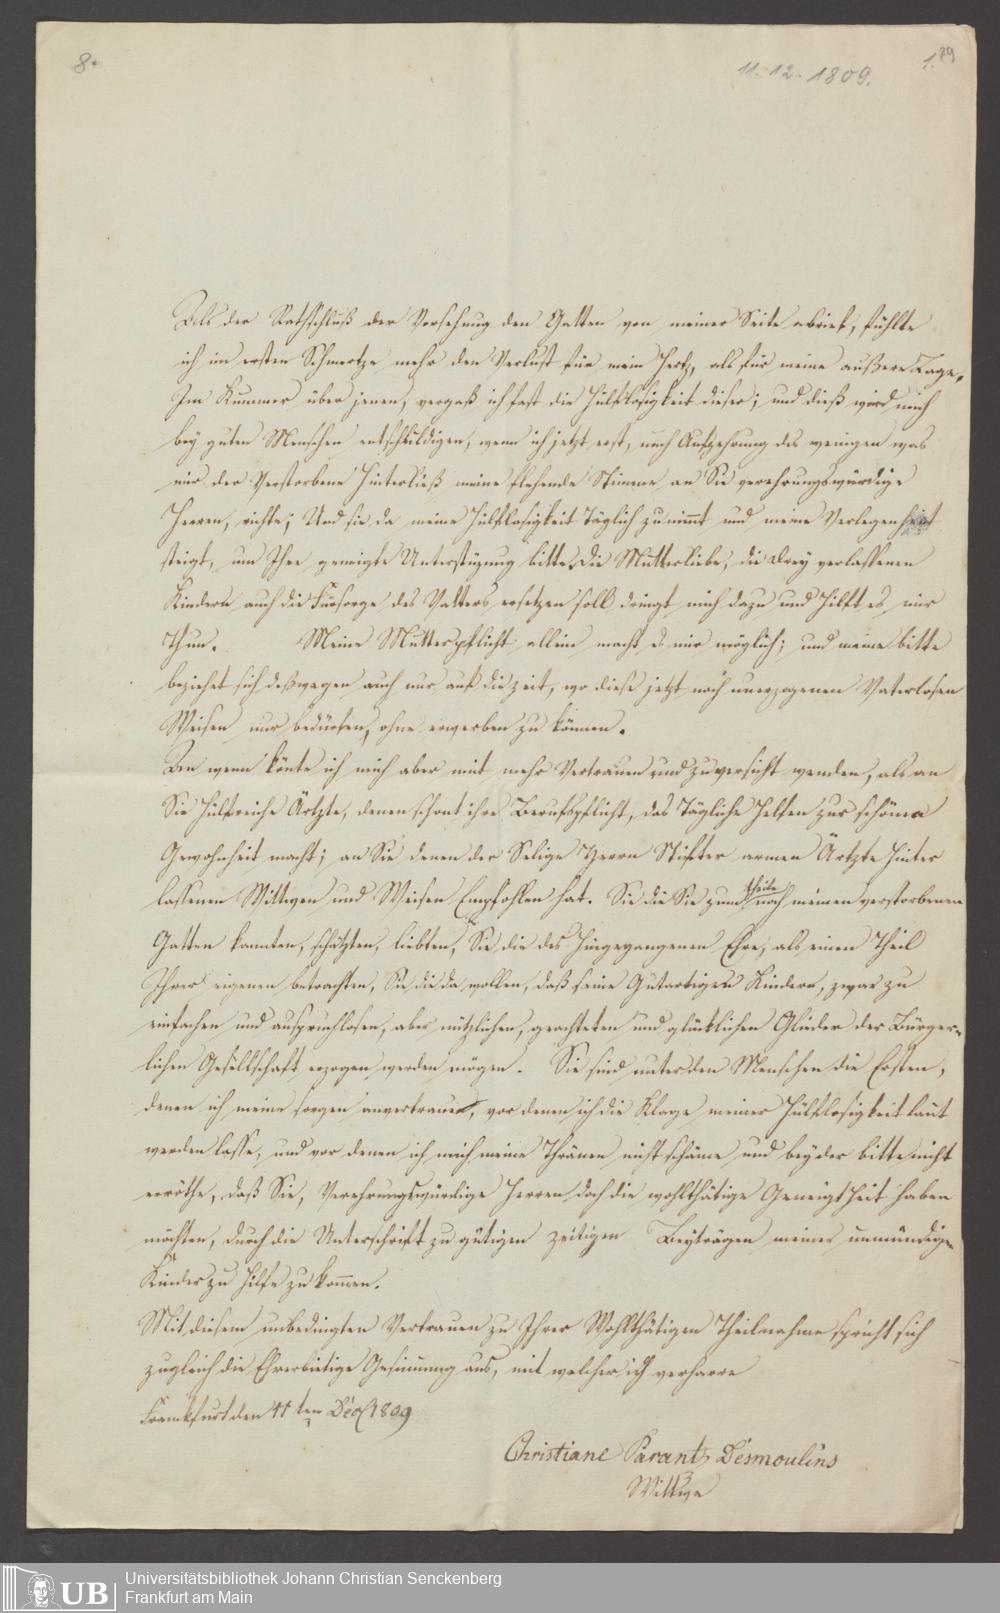 8.
11. 12. 1809.
1. 29
Als der Rathschluß der Vorsehung den Gatten von meiner Seite abrief, fühlte
ich im ersten Schmertze mehr den Verlust für mein Hertz, als für meine außere Lage,
Im Kummer über jenen, vergaß ich fast die Hülflosigkeit dieser; und dieß wird mich
bey guten Menschen entschuldigen, wenn ich jetzt erst, nach Aufzehrung des wenigen was
mir der Verstorbene Hinterließ meine flehende Stimme an Sie verehrungswürdige
Herren, richte; Und sie da meine Hülflosigkeit Täglich zunimmt und meine Verlegenheit
steigt, um Ihre geneigte Unterstüzung bitte. Die Mutterliebe, die drey verlassenen
Kindern auch die Fürsorge des Vatters ersetzen soll dringt mich dazu und Hilft es mir
Thun. Meine Mutterpflicht allein macht es mir möglich; und meine bitte
beziehet sich deßwegen auch nur auf die zeit, wo diese jetzt noch unerzogenen Vaterlosen
Weisen nur bedürfen, ohne erwerben zu können.
An wenn könte ich mich aber mit mehr Vertrauen und zuversicht wenden, als an
Sie Hülfreiche Ärtzte, denen schont ihre Berufspflicht, das Tägliche Helfen zur schönen
Gewohnheit macht; an Sie denen der Selige Herrn Stifter armen Ärtzte Hinter
lassenen Wittwen und Weisen Empfohlen hat. Sie die Sie zum theile noch meinen verstorbenen
Gatten kannten, schätzten, liebten, Sie die des Hingegangenen Ehre, als einen Theil
Ihrer eigenen betrachten, Sie die da wollen, daß seine Gutartigen Kindern, zwar zu
einfachen und anspruchlosen, aber nützlichen, geachteten und glücklichen Glieder der Bürger=
lichen Gesellschaft erzogen werden mögen. Sie sind unter den Menschen die Ersten,
denen ich meine sorgen anvertraue, vor denen ich die Klage meiner Hülflosigkeit laut
werden lasse, und vor denen ich mich meine Thränen nicht schäme und bey der bitte nicht
erröthe, daß Sie, Verehrungswürdige Herren doch die wohlthätige Geneigtheit haben
möchten, durch die Unterschrift zu gütigen zeitigen Beyträgen meiner unmündigen
Kinder zu Hilfe zu kommen.
Mit diesem unbedingten Vertrauen zu Ihrer Wohlthätigen Theilnahme spricht sich
zugleich die Ehrerbietige Gesinnung aus, mit welcher ich verharre
Frankfurt den 11ten Dec 1809
Christiane Parant, Desmoulins
Wittwe
UB
Universitätsbibliothek Johann Christian Senckenberg
Frankfurt am Main